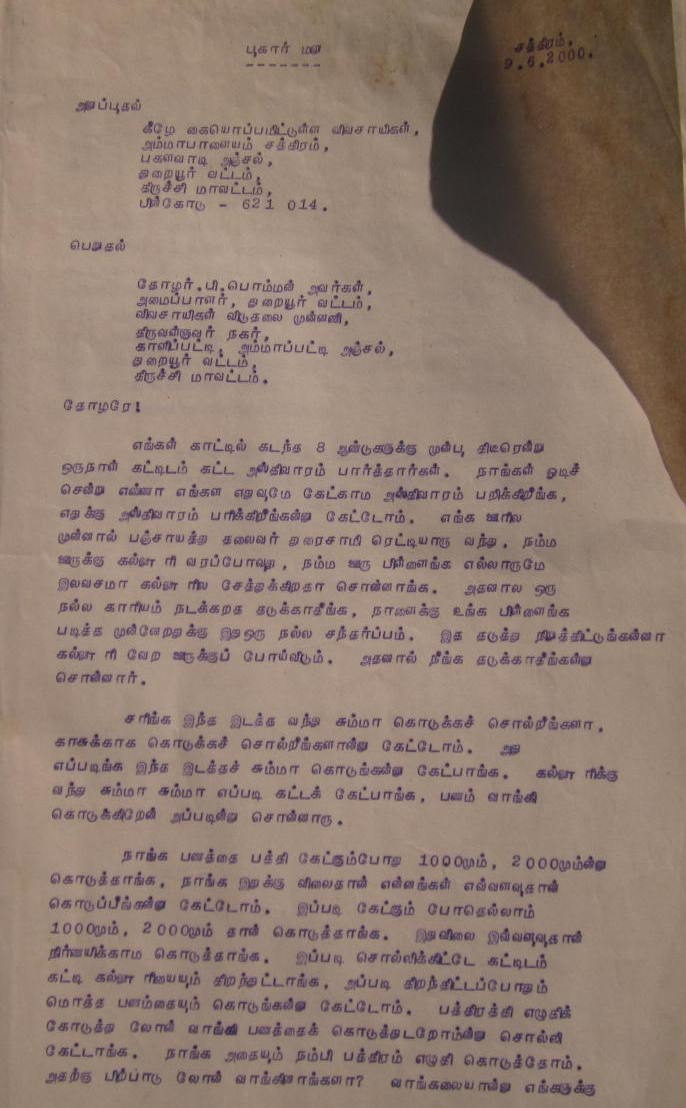 புகார் மனு
சத்திரம்,
9.6.2000.
அனுப்புதல்
கீழே கையொப்பமிட்டுள்ள விவசாயிகள்,
அம்மாபாளையம் சத்திரம்,
பகளவாடி அஞ்சல்,
துறையூர் வட்டம்,
திருச்சி மாவட்டம்,
பின்கோடு - 621 014.
பெறுதல்
தோழர்.பி.பொம்மன் அவர்கள்,
அமைப்பாளர், துறையூர் வட்டம்,
விவசாயிகள் விடுதலை முன்னணி,
திருவள்ளுவர் நகர்,
காளிப்பட்டி, அம்மாப்பட்டி அஞ்சல்,
துறையூர் வட்டம்,
திருச்சி மாவட்டம்.
தோழரே!
எங்கள் காட்டில் கடந்த 8 ஆண்டுகளுக்கு முன்பு திடீரென்று
ஒருநாள் கட்டிடம் கட்ட அஸ்திவாரம் பார்த்தார்கள். நாங்கள் ஓடிச்
சென்று என்னா எங்கள எதுவுமே கேட்காம அஸ்திவாரம் பறிக்கிறீங்க,
எதுக்கு அஸ்திவாரம் பரிக்கிறீங்கன்னு கேட்டோம். எங்க ஊரில
முன்னால் பஞ்சாயத்து தலைவர் துரைசாமி ரெட்டியாரு வந்து, நம்ம
ஊருக்கு கல்லூரி வரப்போவுது, நம்ம ஊரு பிள்ளைங்க எல்லாருமே
இலவசமா கல்லூரில சேத்துக்கிறதா சொன்னாங்க. அதனால ஒரு
நல்ல காரியம் நடக்கறத தடுக்காதீங்க, நாளைக்கு உங்க பிள்ளைங்க
படித்த முன்னேறதுக்கு இதுஒரு நல்ல சந்தர்ப்பம். இத தடுத்து நிறுத்திட்டுங்கன்னா
கல்லூரி வேற ஊருக்குப் போய்விடும். அதனால் நீங்க தடுக்காதீங்கன்னு
சொன்னார்.
சரிங்க இந்த இடத்த வந்து சும்மா கொடுக்கச் சொல்றீங்களா,
காசுக்காக கொடுக்கச் சொல்றீங்களான்னு கேட்டோம். அது
எப்படிங்க இந்த இடத்தச் சும்மா கொடுங்கன்னு கேட்பாங்க. கல்லூரிக்கு
வந்து சும்மா சும்மா எப்படி கட்டக் கேட்பாங்க, பனம் வாங்கி
கொடுக்கிறேன் அப்படின்னு சொன்னாரு.
நாங்க பனத்தை பத்தி கேட்கும்போது 1000மும், 2000மும்ன்னு
கொடுத்தாங்க, நாங்க இதுக்கு விலைதான் என்னங்கள் எவ்வளவுதான்
கொடுப்பீங்கன்னு கேட்டோம். இப்படி கேட்கும் போதெல்லாம்
1000மும், 2000மும் தான் கொடுத்தாங்க. இதுவிலை இவ்வளவுதான்
நிர்ணயிக்காம கொடுத்தாங்க. இப்படி சொல்லிக்கிட்டே கட்டிடம்
கட்டி கல்லூரியையும் திறந்துட்டாங்க, அப்படி திறந்திட்டப்போதும்
மொத்த பனம்தையும் கொடுங்கன்னு கேட்டோம். பத்திரத்தி எழுதிக்
கோடுத்து லோன் வாங்கி பனத்தைக் கொடுத்துடறோம்ன்னு சொல்லி
கேட்டாங்க. நாங்க அதையும் நம்பி பத்திரம் எழுதி கொடுத்தோம்.
அதற்கு பிற்பாடு லோன் வாங்கினாங்களா? வாங்கலையான்னு எங்களுக்கு